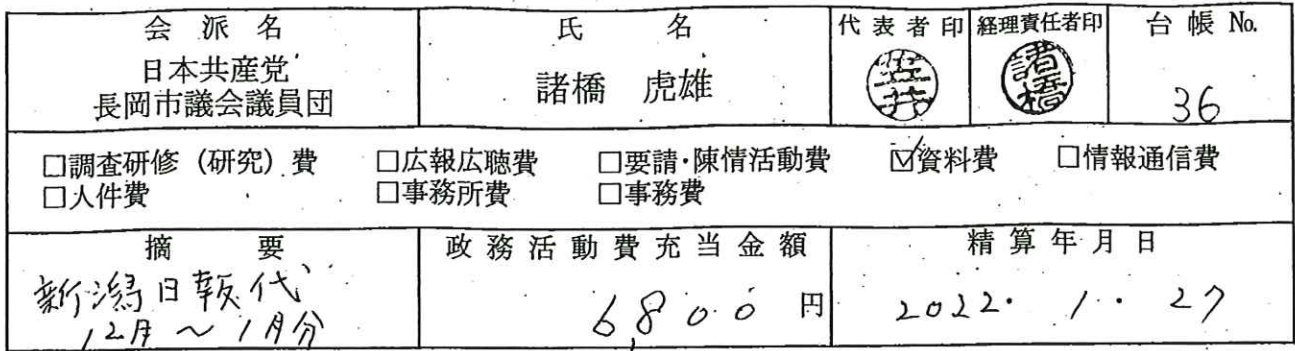 会派名 氏名 代表者印 経理責任者印 台帳No.
日本共産党
長岡市議会議員団
諸橋 虎雄
諸橋
36
□調査研修(研究)費 □広報広聴費 □要請・陳情活動費 ☑資料費 □情報通信費
□人件費 □事務所費 □事務費
摘要 政務活動費充当金額 精算年月日
新潟日報代
12月～1月分
6,800円
2022・1・27